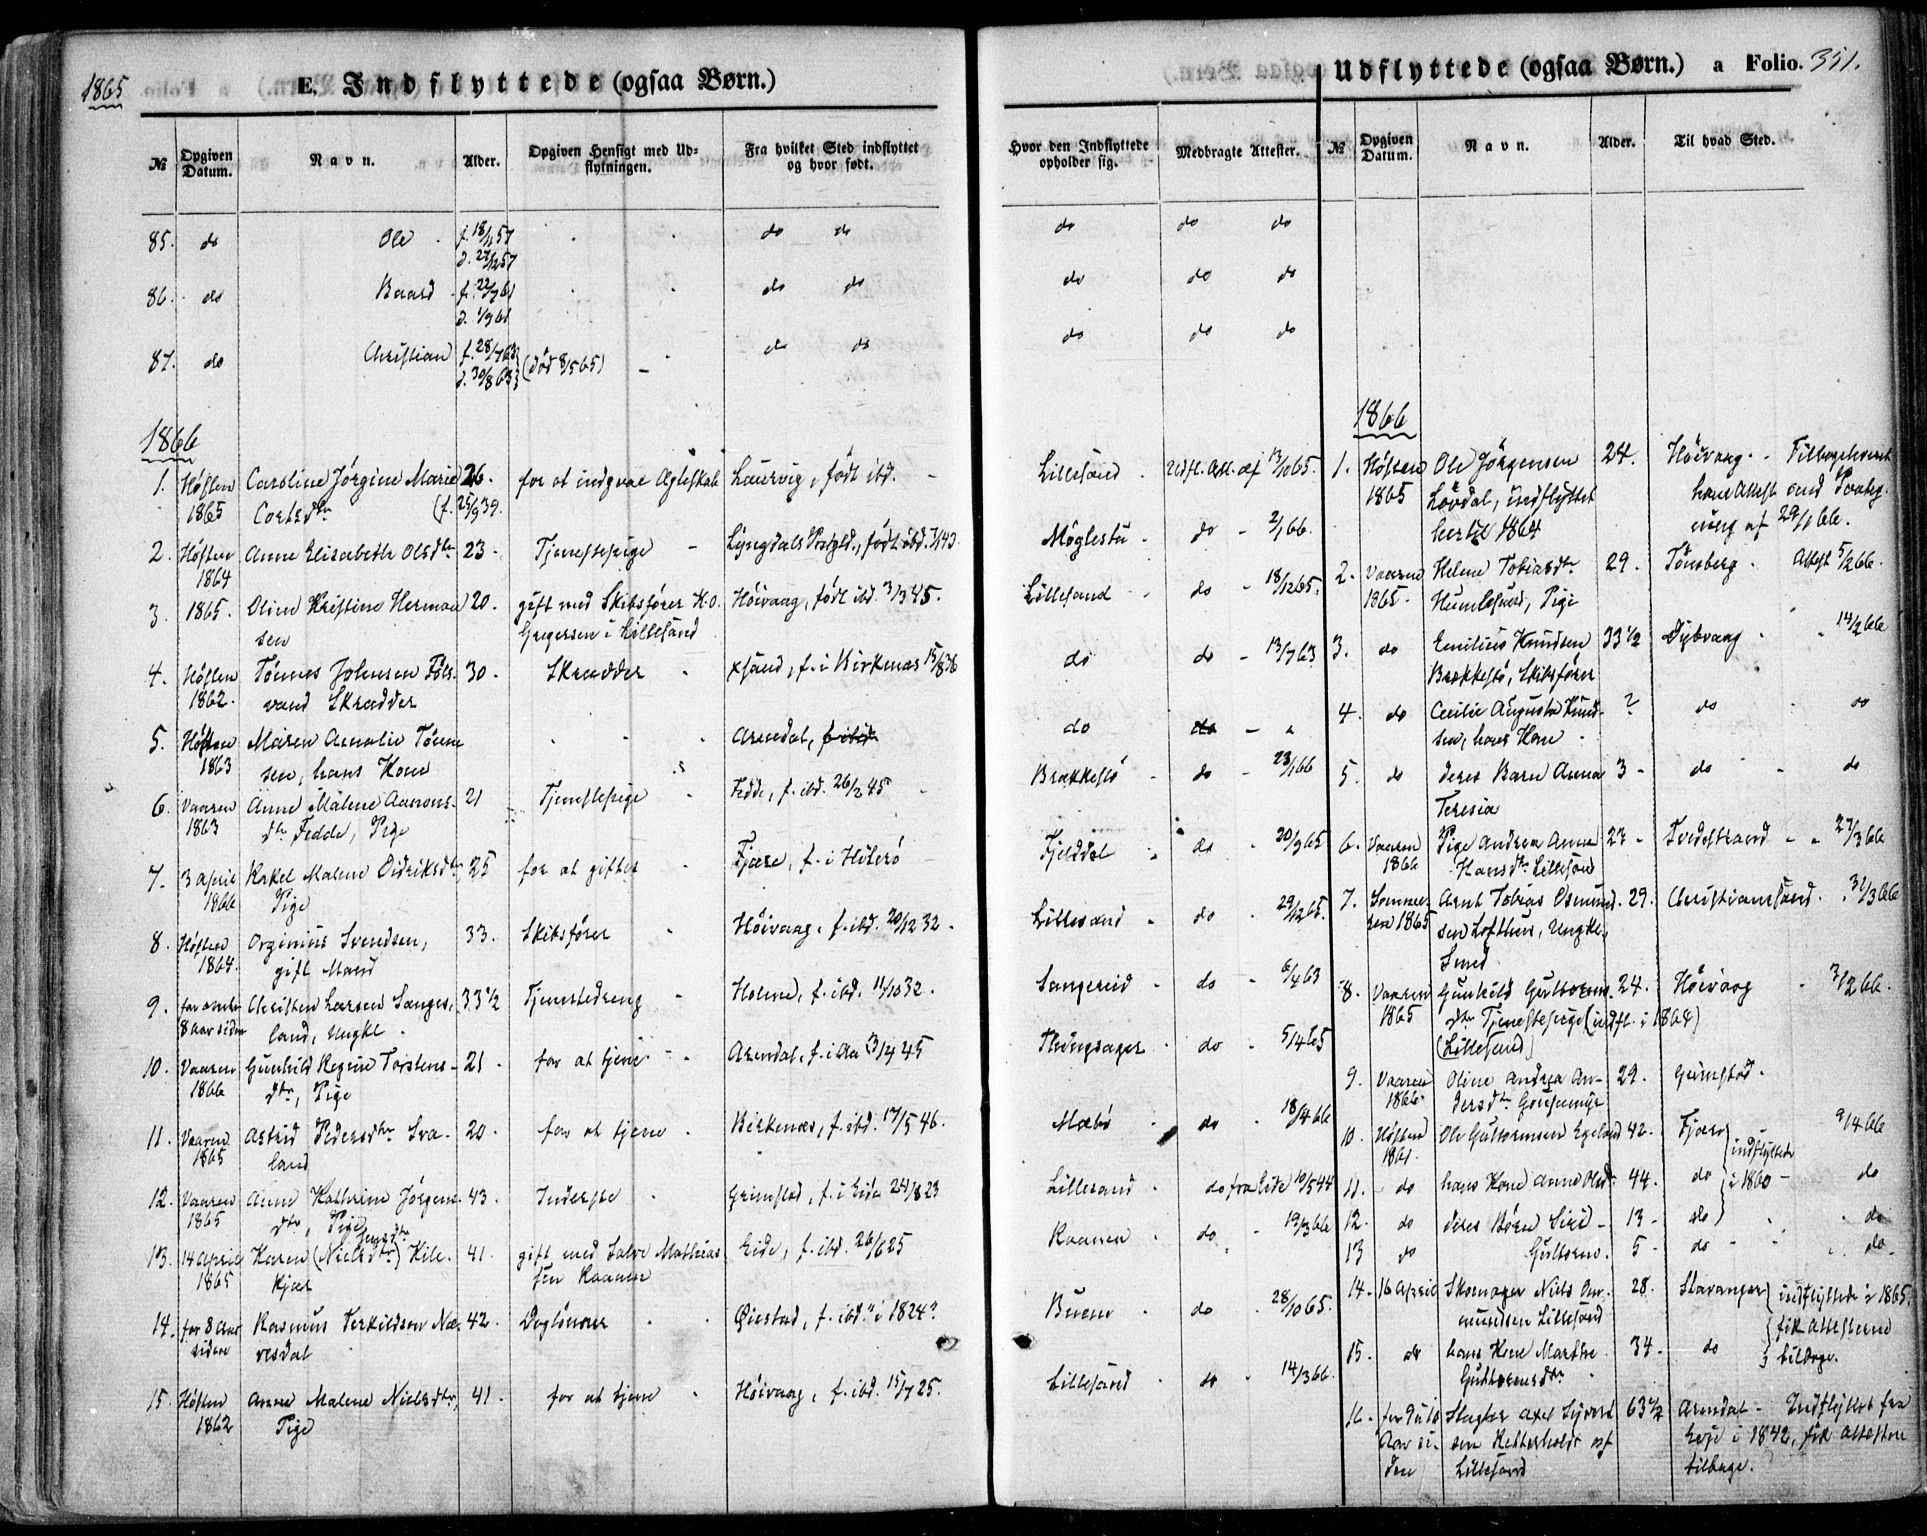 1865
E. Indflyttede (ogsaa Børn.)
№ Opgiven Datum. Navn. Alder. Opgiven Hensigt med Udflytningen. Fra hvilket Sted indflyttet og hvor født.
85. do Ole f. 18/11 57 do do
d. 27/12 57
86. do Baard f. 22/7 61 do do
d. 1/9 61
87. do Christian f. 28/7 63 (død 8/5 65) do do
d. 30/8 63
1866
1. Høsten Caroline Jörgine Marie 26. for at indgaae Ægteskab Laurvig, født ibd.
1865 (f. 25/9 39.
2. Høsten Anne Elisabeth Olsdtr 23 Tjenestepige Lyngdals født ibd.
1864
3 1865. Oline Kristine Herman 20. gift med Skibsfører K.O. Höivaag, født ibd. 3/3 45.
sen Gregersen i Lillesand
4. Høsten Tönnes Johnsen 30. Skrædder xsand, f. i Birkenæs
1862. vand Skrædder
5. Høsten Maren Amalie Tönne Arendal, f. ibd.
1863 sen, hans Kone
6. Vaaren Anne Malene Aanons- 21 Tjenestepige Fedde, f. ibd. 26/2 45
1863 dtr Fedde, Pige
7. 3 April Rakel Malene Didriksdtr, 25 for at giftes Fjære, f. i Hiterö
1866 Pige
8. Høsten Orginius Svendsen, 33. Skibsfører Höivaag, f. ibd. 20/12 32.
1864. gift Mand
9. for omtr Christen Larsen Sanges- 33 1/2 Tjenestedreng Holme, f. ibd. 11/10 32.
8 Aar siden land, Ungkl.
10. Vaaren Gunhild Regine Torstens- 21. for at tjene Arendal, f. i 45
1866 dtr, Pige
11. Vaaren Astrid Pedersdtr Sva- 20. for at tjene Birkenæs, f. ibd. 17/5 46.
1865 land
12. Vaaren Anne Kathrine Jörgens- 43. Inderste Grimstad, f. i Eide 24/8 23
1865 dtr, Pige
13. 14 April Karen (Nielsdtr) Kile- 41. gift med Salve Mathias Eide, f. ibd. 26/6 25
1865 kjær sen Kaanen
14. for 8 Aar Rasmus Terkildsen Næ- 42. Daglönner Øiestad, f. ibd. i 1824?
siden vesdal
15. Høsten Anne Malene Nielsdtr, 41. for at tjene Höivaag, f. ibd. 15/7 25.
1862 Pige
Hvor den Indflyttede opholder sig. Medbragte Attester.
do do do
do do do
do do do
Lillesand Udfl. Att. af 13/10 65.
Möglestu do 2/1 66.
Lillesand do 18/12 65.
do do 13/7 63
do do
Brækkestö do 23/1 66
Fjelddal do 20/9 65
Lillesand do 29/12 65.
Sangereid do 6/4 63
Thingsager do 5/4 65
Mæbö do 18/4 66
Lillesand do fra Eide 10/5 44
Kaanen do 19/3 66
Buene do 28/10 65.
Lillesand do 14/3 66.
Udflyttede (ogsaa Børn.) a Folio. 351.
№ Opgiven Datum. Navn. Alder. Til hvad Sted.
1866
1. Høsten Ole Jörgensen 24. Höivaag. Tilbageleveret
1865 Lövdal, indflyttet hans Attest med Paateg-
hertil 1864 ning af 29/1 66.
2. Vaaren Helene Tobiasdtr 29. Tönsberg. Attest 5/2 66.
1865. Humlesund, Pige
3. do Emilius Knudsen 33 1/2 Dybvaag 14/2 66
Brækkestö, Skibsfører
4. do Cecilie Augusta Knud- ? do do
sen, hans Kone
5. do deres Barn Anna 3 do do
Teresia
6. Vaaren Pige Andrea Anne 27 Tvedestrand 27/3 66
1866 Hansdtr Lillesand
7. Sommer Arnt Tobias Osmund 29. Christianssand 31/3 66
1865 sen Lofthus, Ungkl.,
Smed
8. Vaaren Gunhild Guttorms- 24. Höivaag 3/2 66.
1865 dtr Tjenestepige (indfl. i 1864)
(Lillesand)
9. Vaaren Oline Andrea An- 29. Grimstad.
1866. dersdtr
10. Høsten Ole Guttormsen Egeland 42. Fjære 9/4 66
1861. indflyttede
11. do hans Kone Anne Olsdtr 44. do i 1860 do
12. do deres Børn Siri 13 do do
13 do Guttorm. 5 do do
14. 16 April Skomager Niels Am- 28. Stavanger indflyttede i 1865.
mundsen Lillesand fik Attesterne
15. do hans Kone Marthe 34. do tilbage.
Guttormsdtr
16. for 9 a 10 Slagter Axel Syvert 63 1/2 Arendal Indflyttet fra
Aar si- sen af i 1842, fik Attesten
den Lillesand tilbage.